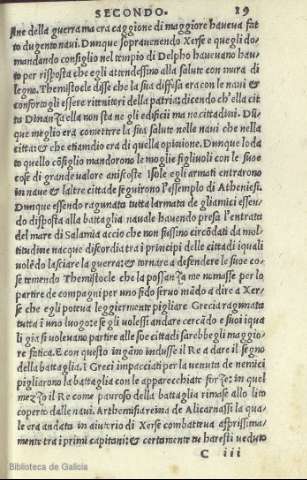 SECONDO. 29
ine della guerra ma era caggione di maggiore haueua fat
to dugento naui. Dunque soprauenendo Xerse e quegli do,
mandando consiglio nel tempio di Delpho haueuano hau,
to per risposta che egli attendessino alla salute con mura di
legno. Themistocle disse che la sua diffisa era con le naui &
conforto gli essere rittnitori della patria: dicendo ch'ella cit
ta Dinanza ella non sta ne gli edificii ma ne cittadini. Dū
que meglio era comettere la sua salute nella naui che nella
citta: & che etiamdio era di quella opinione. Dunque lo da
to quello cōsiglio mandorono le moglie figliuoli con le suoe
cose di grande valore
in naue & l'altre cittade seguirono l'essempio di Atheniesi.
Dunque essendo ragunata tutta l'armata de gli amici essen,
do disposta alla battaglia nauale hauendo presa l'entrata
del mare di Salamia accio che non fussino circōdati da mol
titudine nacque discordia tra i principi delle cittadi i quali
volēdo lasciare la guerra: & tornare a defendere le suoe co,
se temendo Themistocle che la possanza ne
partire de compagni per uno fido seruo mādo a dire a Xer,
se che egli poteua leggiermente pigliare Grecia ragunata
tutta i uno luogo: e se gli volessi andare cercādo e suoi qua
li gia si voleuano partire alle soe cittadi sarebbe gli maggio,
re fatica. E con questo ingāno indusse il Re a dare il segno
della battaglia. I Greci impacciati per la venuta de nemici
pigliarono la battaglia con le apparecchiate forze: in quel
mezzo il Re come pauroso della battaglia rimase allo lito
coperto dalle naui. Arthemisia reina de Alicarnassi la qua,
le era andata in aiutorio di Xerse combattiua asprissima,
mente tra i primi capitani: & certamente tu haresti veduto
C iii
Biblioteca de Galicia